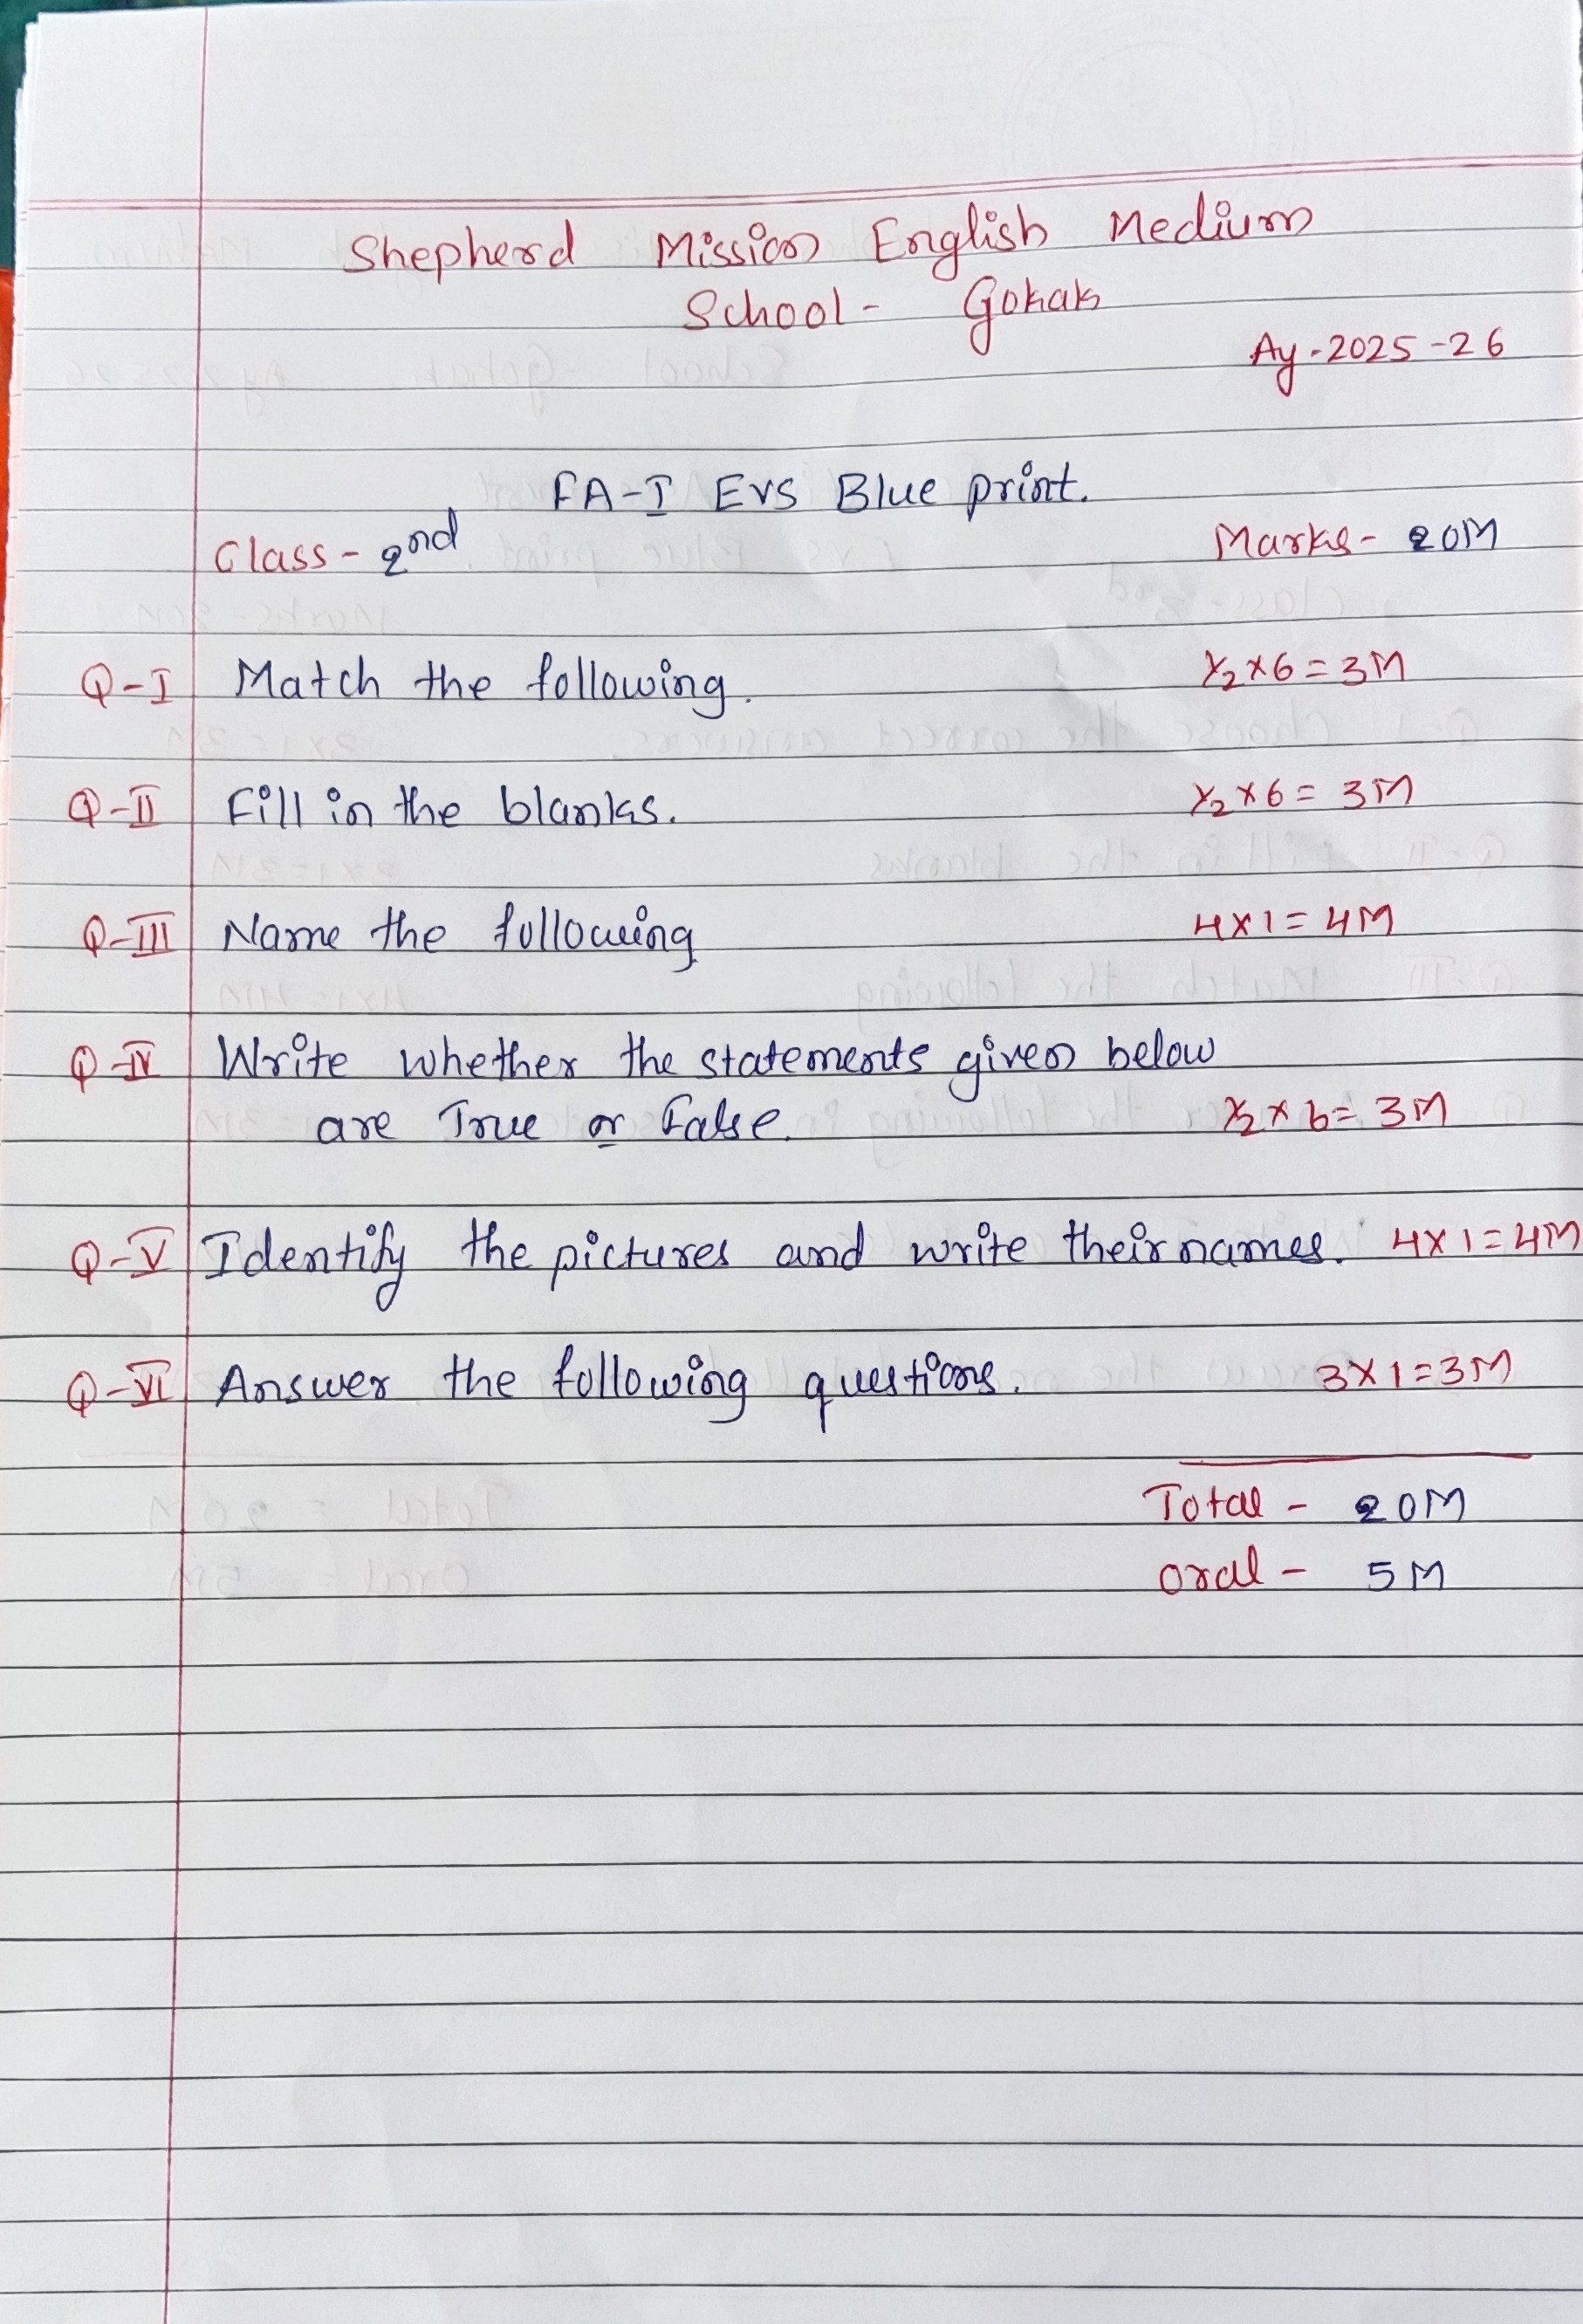 Shepherd Mission English Medium
School - Gokak
Ay - 2025 - 26
FA-I EVS Blue print.
Class - 2nd Marks - 20M
Q-I Match the following. ½ × 6 = 3M
Q-II Fill in the blanks. ½ × 6 = 3M
Q-III Name the following 4 × 1 = 4M
Q-IV Write whether the statements given below
are True or False. ½ × 6 = 3M
Q-V Identify the pictures and write their names. 4 × 1 = 4M
Q-VI Answer the following questions. 3 × 1 = 3M
Total - 20M
oral - 5M